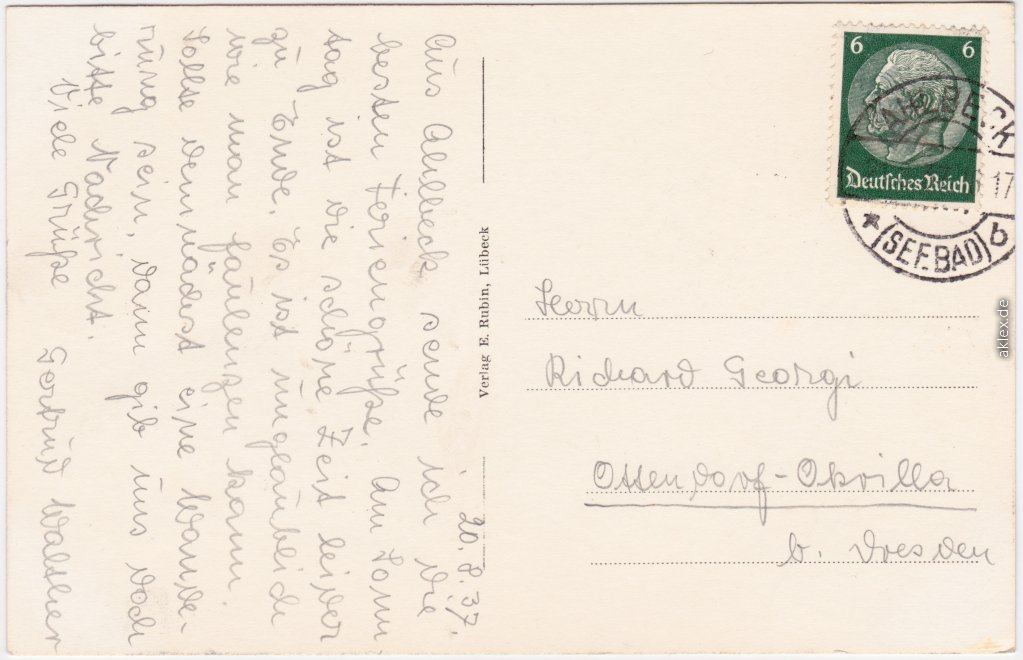 20. 8. 37.
Aus Ahlbeck sende ich die
besten Feriengrüße. Am Sonn
tag ist die schöne Zeit leider
zu Ende. Es ist unglaublich
wie man faulenzen kann.
Sollte demnächst eine Wande-
rung sein, dann gib uns doch
bitte Nachricht.
Viele Grüße Gertrud Walther
Verlag E. Rubin, Lübeck
6 6
Deutsches Reich
AHLBECK
17
* (SEEBAD) b
Herrn
Richard Georgi
Ottendorf-Okrilla
b. Dresden
aklex.de